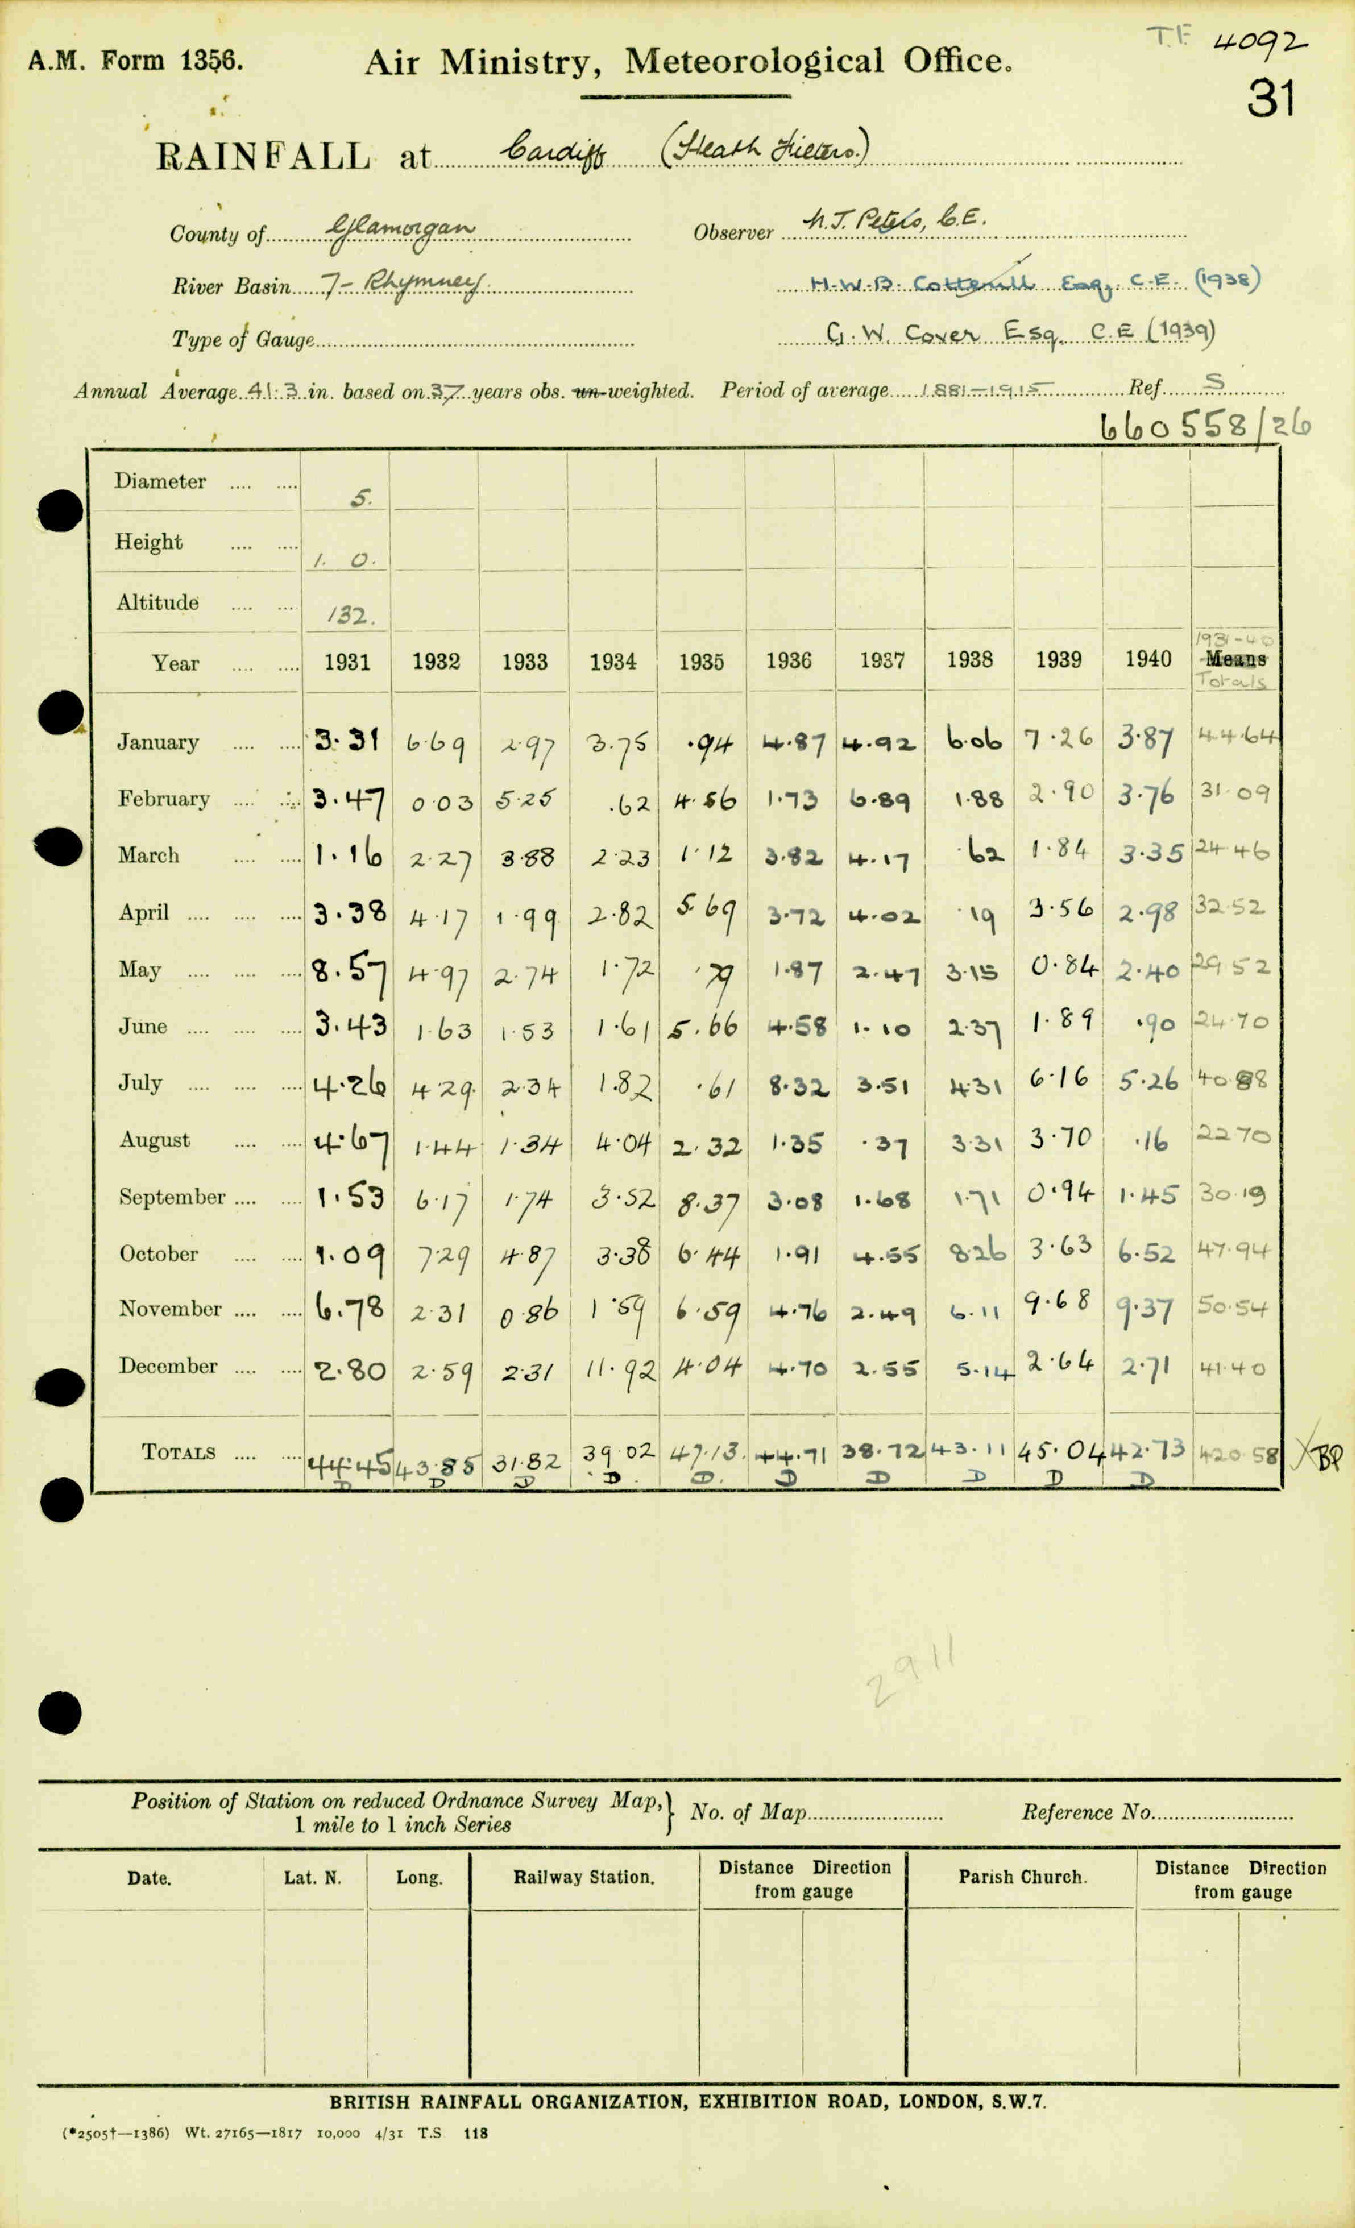 T.F. 4092
A.M. Form 1356. Air Ministry, Meteorological Office.
31
RAINFALL at Cardiff (Heath Filters.)
County of Glamorgan Observer N.J. Peters, C.E.
River Basin 7- Rhymney. H.W.B. Cotterill Esq, C.E. (1938)
Type of Gauge G. W. Cover Esq. C.E (1939)
Annual Average 41.3 in. based on 37 years obs. un-weighted. Period of average 1881-1915 Ref. S
660558/26
Diameter 5.
Height 1. 0.
Altitude 132.
1931-40
Year 1931 1932 1933 1934 1935 1936 1937 1938 1939 1940 Means
Totals
January 3.31 6.69 2.97 3.75 .94 4.87 4.92 6.06 7.26 3.87 44.64
February 3.47 0.03 5.25 .62 4.56 1.73 6.89 1.88 2.90 3.76 31.09
March 1.16 2.27 3.88 2.23 1.12 3.82 4.17 .62 1.84 3.35 24.46
April 3.38 4.17 1.99 2.82 5.69 3.72 4.02 .19 3.56 2.98 32.52
May 8.57 4.97 2.74 1.72 .79 1.87 2.47 3.15 0.84 2.40 29.52
June 3.43 1.63 1.53 1.61 5.66 4.58 1.10 2.37 1.89 .90 24.70
July 4.26 4.29 2.34 1.82 .61 8.32 3.51 4.31 6.16 5.26 40.88
August 4.67 1.44 1.34 4.04 2.32 1.35 .37 3.31 3.70 .16 22.70
September 1.53 6.17 1.74 3.52 8.37 3.08 1.68 1.71 0.94 1.45 30.19
October 1.09 7.29 4.87 3.38 6.44 1.91 4.55 8.26 3.63 6.52 47.94
November 6.78 2.31 0.86 1.59 6.59 4.76 2.49 6.11 9.68 9.37 50.54
December 2.80 2.59 2.31 11.92 4.04 4.70 2.55 5.14 2.64 2.71 41.40
TOTALS 44.45 43.85 31.82 39.02 47.13. 44.71 38.72 43.11 45.04 42.73 420.58 X BP
D D D D D. D D D D D
2911
Position of Station on reduced Ordnance Survey Map, } No. of Map Reference No.
1 mile to 1 inch Series
Date. Lat. N. Long. Railway Station. Distance Direction from gauge Parish Church. Distance Direction from gauge
BRITISH RAINFALL ORGANIZATION, EXHIBITION ROAD, LONDON, S.W.7.
(*2505†—1386) Wt. 27165—1817 10,000 4/31 T.S. 118